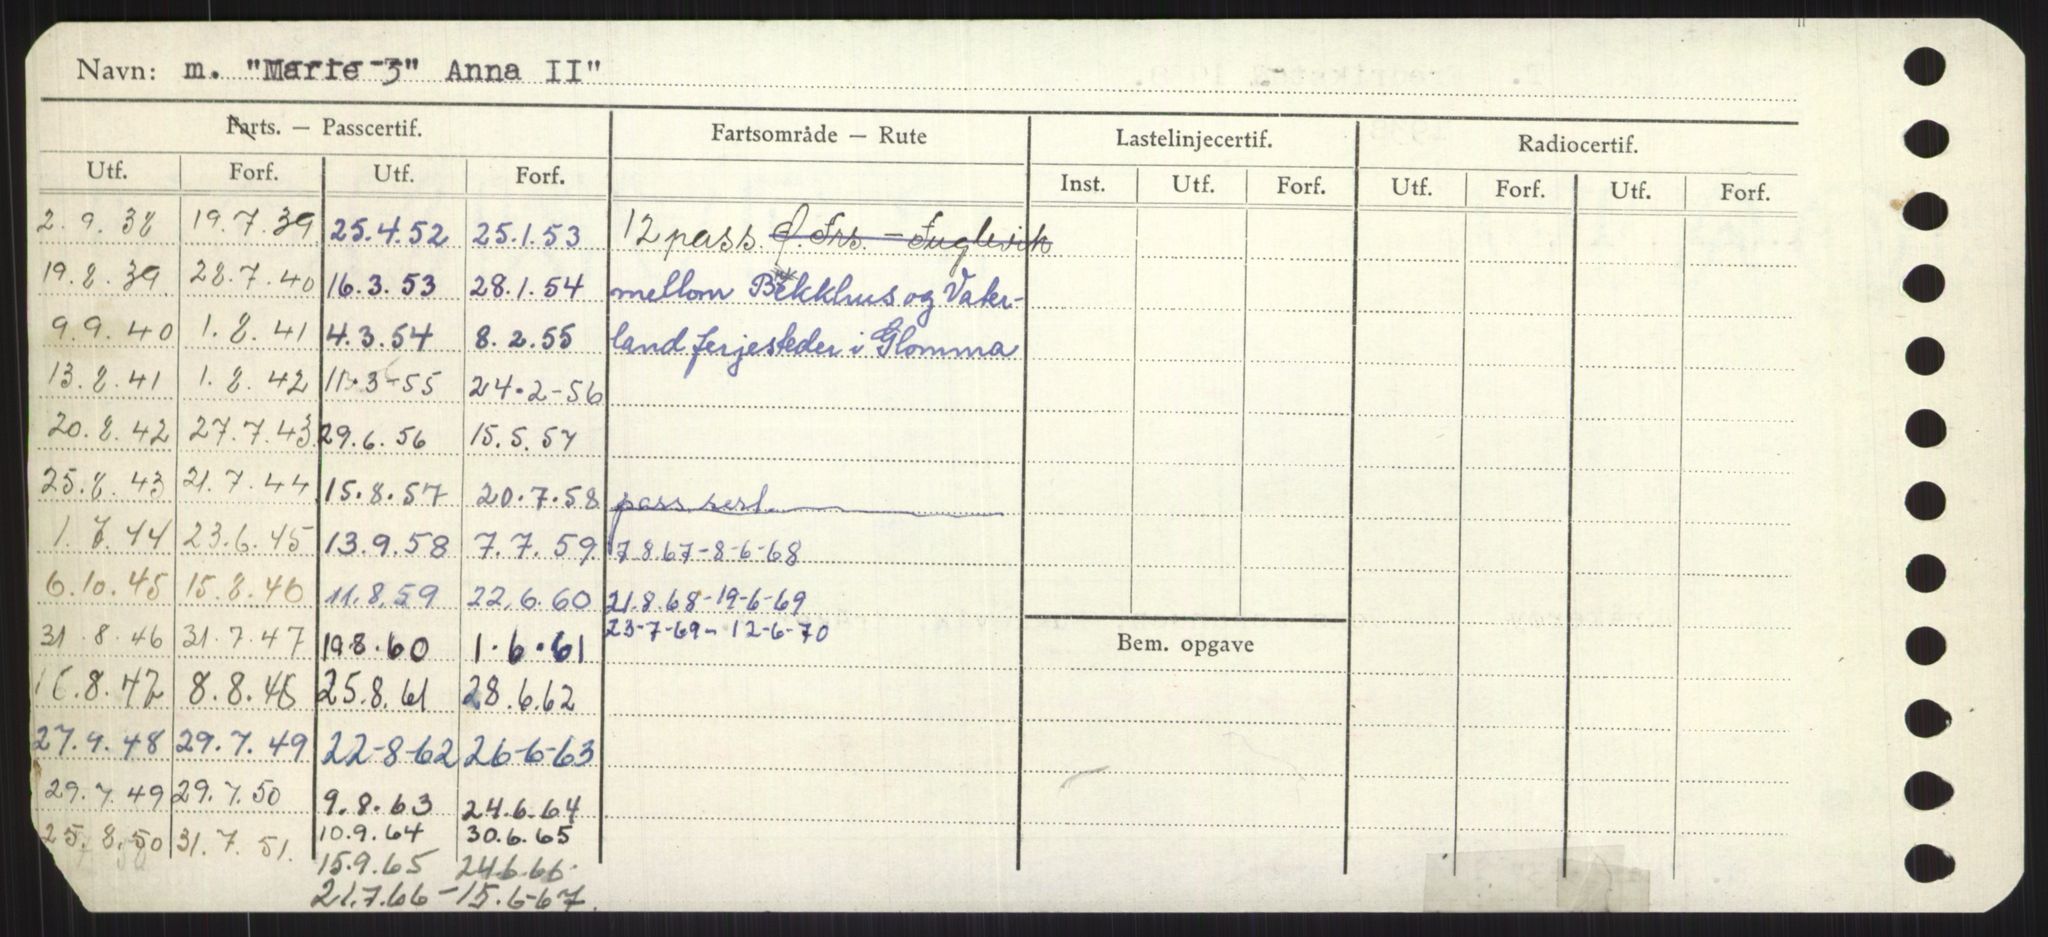 Navn: m. "Marie 3" Anna II"
Farts. — Passcertif. Fartsområde — Rute Lastelinjecertif. Radiocertif.
Utf. Forf. Utf. Forf. Inst. Utf. Forf. Utf. Forf. Utf. Forf.
2.9.38 19.7.39 25.4.52 25.1.53 12 pass. Frs. - Fuglevik
19.8.39 28.7.40 16.3.53 28.1.54 mellom Bekkhus og Vater-
9.9.40 1.8.41 4.3.54 8.2.55 land ferjesteder i Glomma
13.8.41 1.8.42 11.3-55 24.2-56
20.8.42 27.7.43 29.6.56 15.5.57
25.8.43 21.7.44 15.8.57 20.7.58 pass. sert.
1.7.44 23.6.45 13.9.58 7.7.59 7.8.67-8-6-68
6.10.45 15.8.46 11.8.59 22.6.60 21.8.68-19-6-69
31.8.46 31.7.47 19.8.60 1.6.61 23-7-69- 12-6-70 Bem. opgave
16.8.47 8.8.48 25.8.61 28.6.62
27.9.48 29.7.49 22-8-62 26-6-63
29.7.49 29.7.50 9.8.63 24.6.64
25.8.50 31.7.51. 10.9.64 30.6.65
15.9.65 24.6.66.
21.7.66-15.6-67.